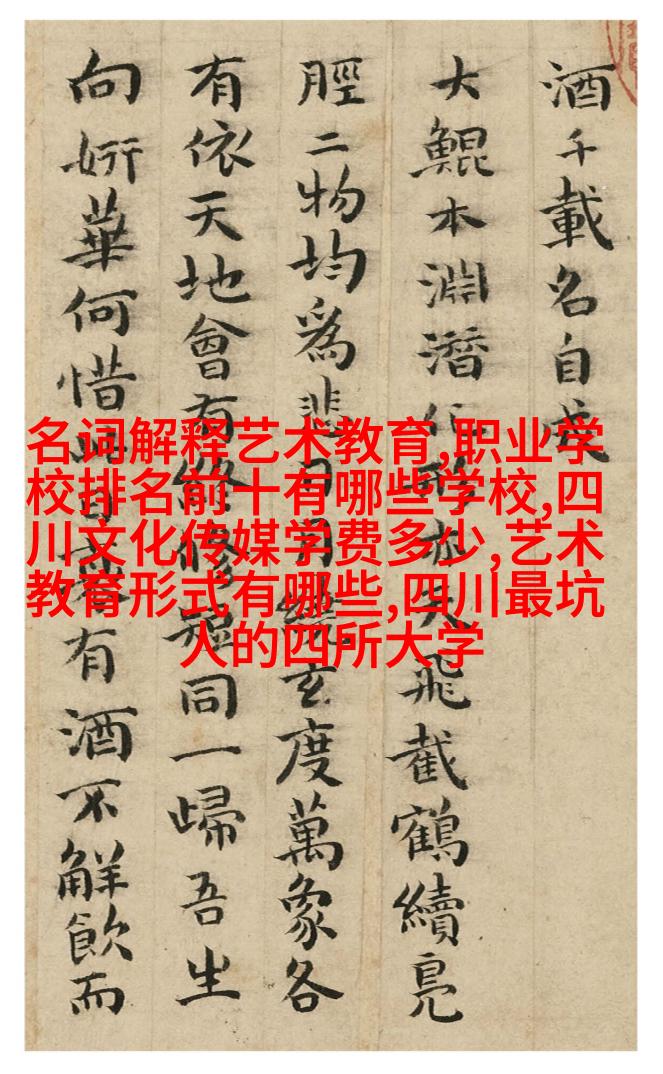 酒千載名自
大鯤本淵潛飛截鶴續鳧
脛二物均爲悲玄度萬象各
有依天地會有同一歸吾生
向妍華何惜有酒不解飲而
名词解释艺术教育,职业学
校排名前十有哪些学校,四
川文化传媒学费多少,艺术
教育形式有哪些,四川最坑
人的四所大学